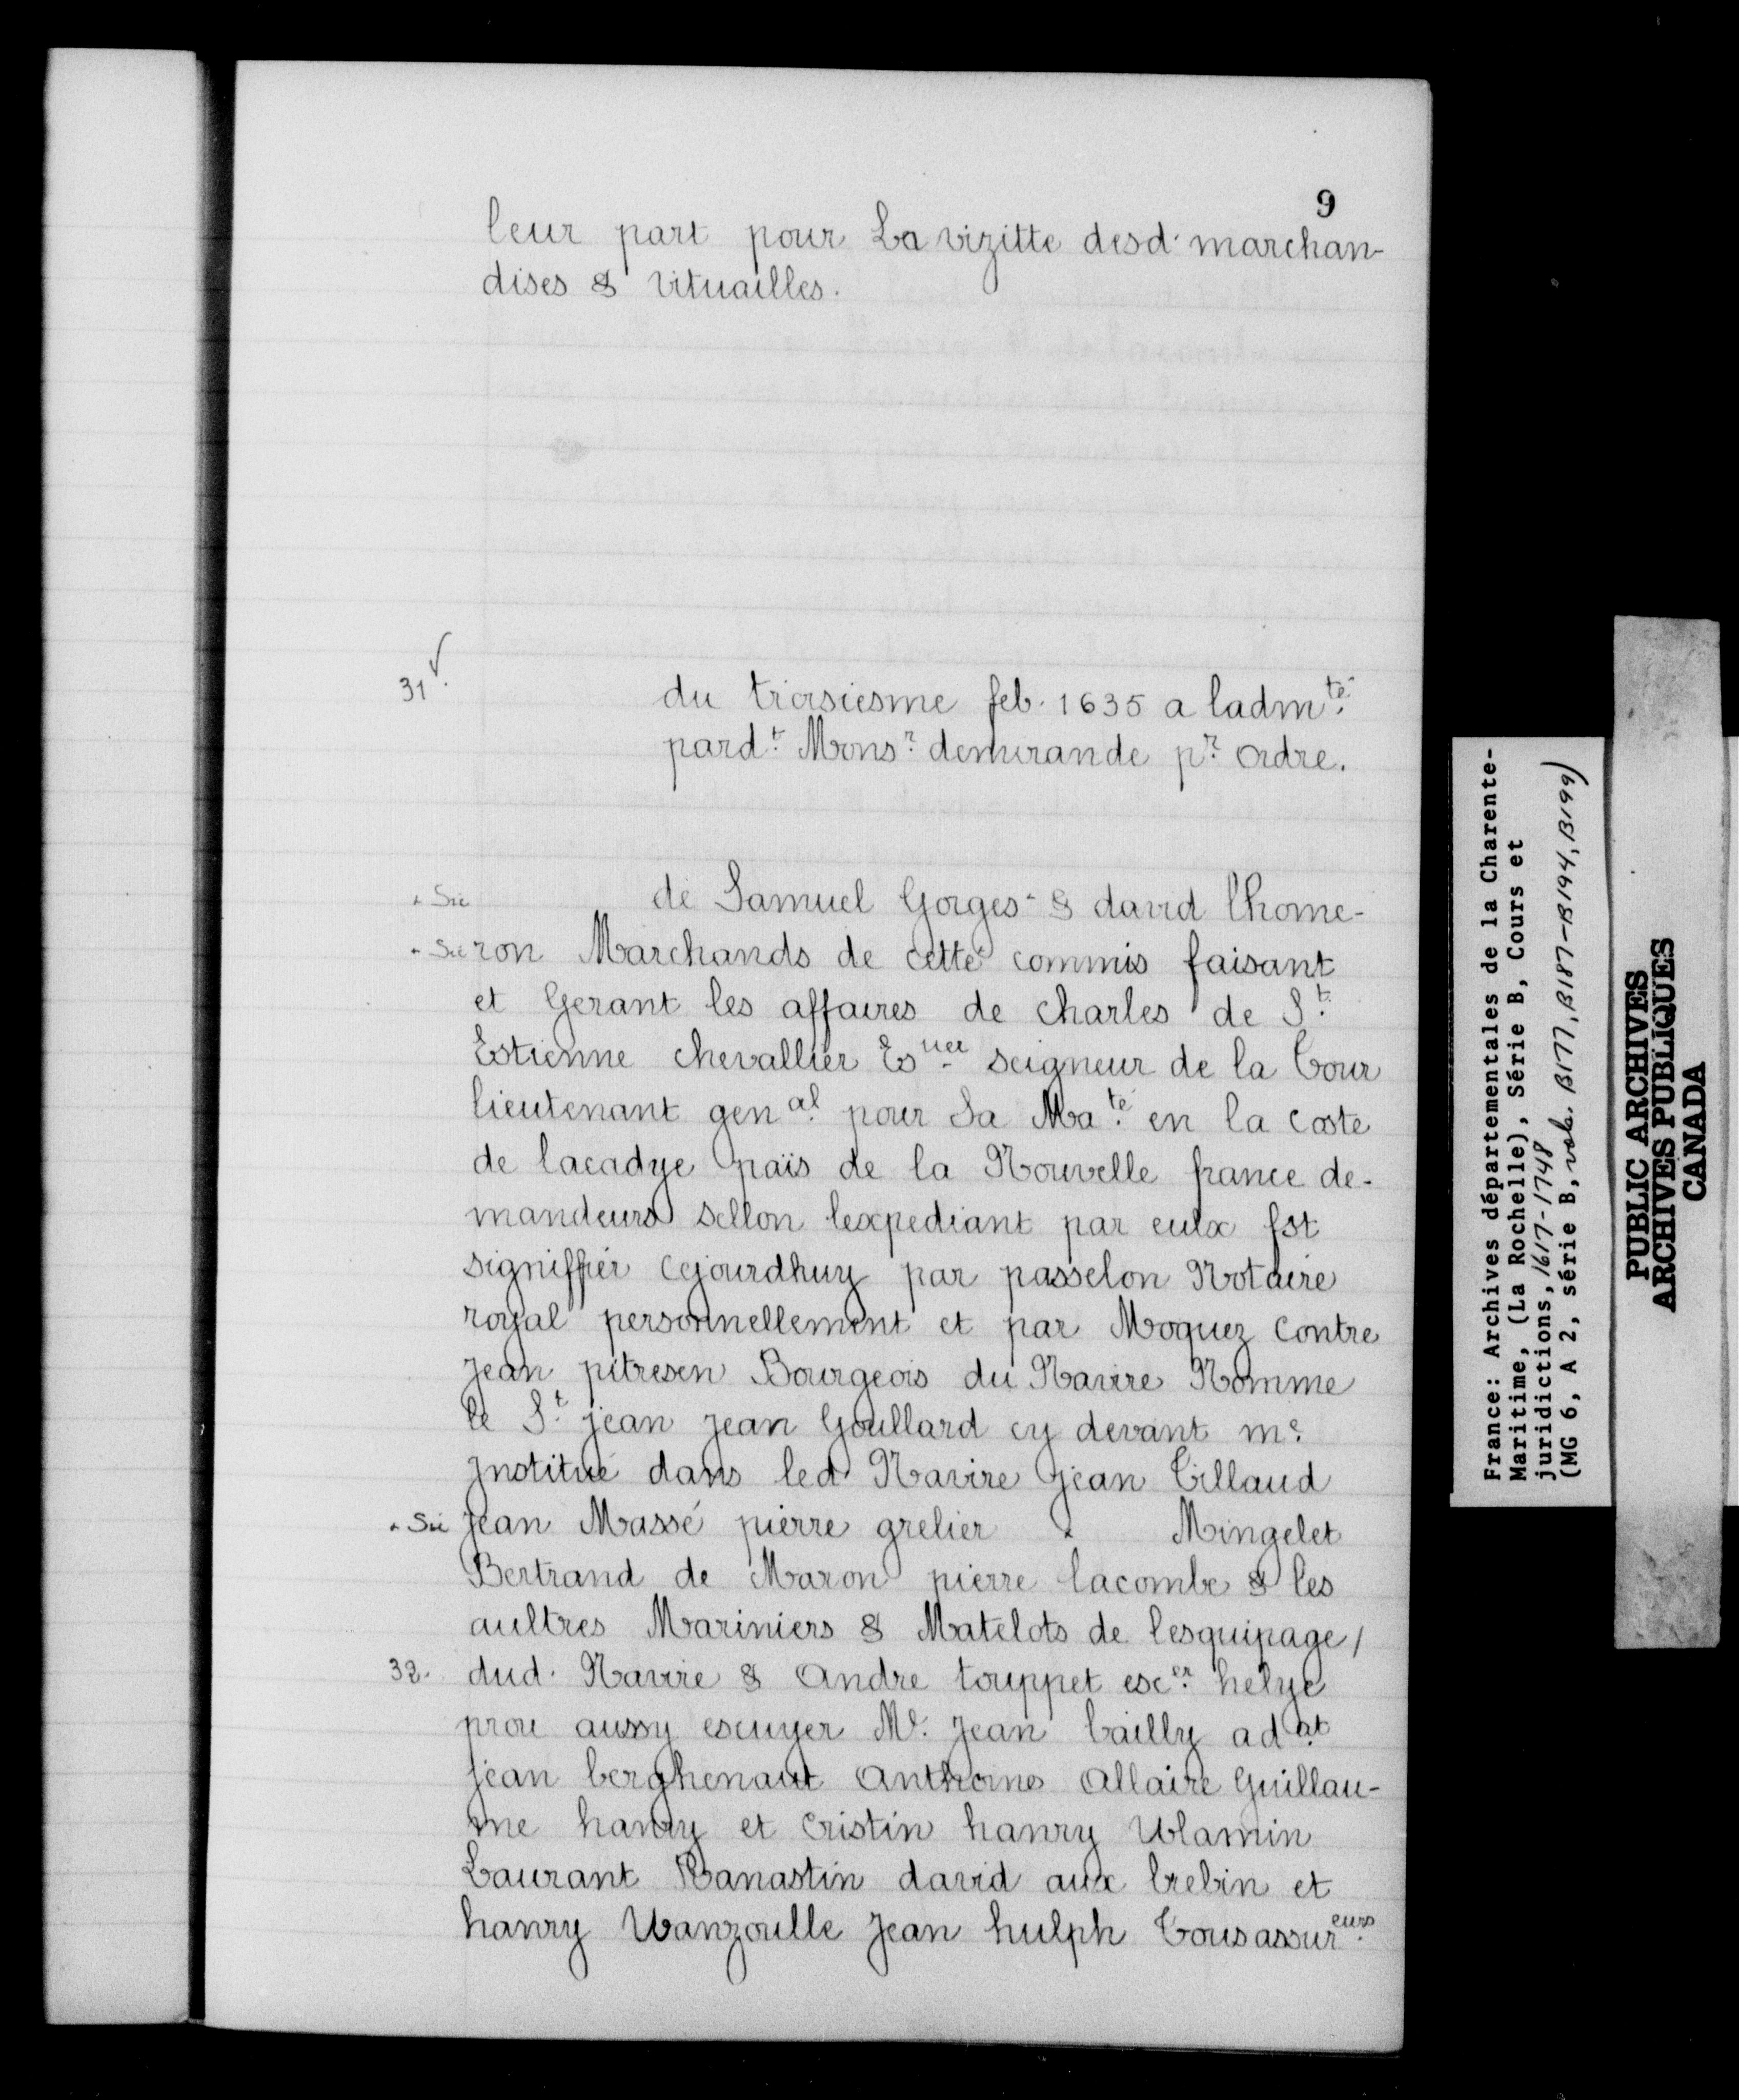 9
leur part pour La vizitte desd. marchan-
dises & vituailles.
31 ✓.
du troisiesme feb. 1635 a ladmté.
pardt. Monsr. demirande pr. ordre.
+ Sic
de Samuel Gorges + & david lhome-
+ Sic
ron Marchands de cette+ commis faisant
et Gerant les affaires de charles de St.
Estienne chevallier Esuer seigneur de la Tour
lieutenant genal. pour Sa Maté. en la coste
de lacadye païs de la Nouvelle france de-
mandeurs sellon lexpediant par eulx fst
signiffier Cejourdhuy par passelon Notaire
royal personnellement et par Moquez contre
Jean pitresen Bourgeois du Navire Nomme
le St. jean Jean Goullard cy devant me.
Institué dans led. Navire Jean Tillaud
+ Sic
Jean Massé pierre grelier + Mingelet
Bertrand de Maron pierre lacombe & les
aultres Mariniers & Matelots de lesquipage /
32.
dud. Navire & Andre touppet escer. helye
prou aussy escuyer Me. Jean bailly adat.
jean berghenaut Anthoine Allaire Guillau-
me hanry et Cristin hanry Ulamin
Laurant Banastin david aux brebin et
hanry Wanzoulle Jean hulph Tous assureurs.
France: Archives départementales de la Charente-
Maritime, (La Rochelle), Série B, Cours et
juridictions, 1617-1748
(MG 6, A 2, série B, vols. B177, B187-B194, B199)
PUBLIC ARCHIVES
ARCHIVES PUBLIQUES
CANADA